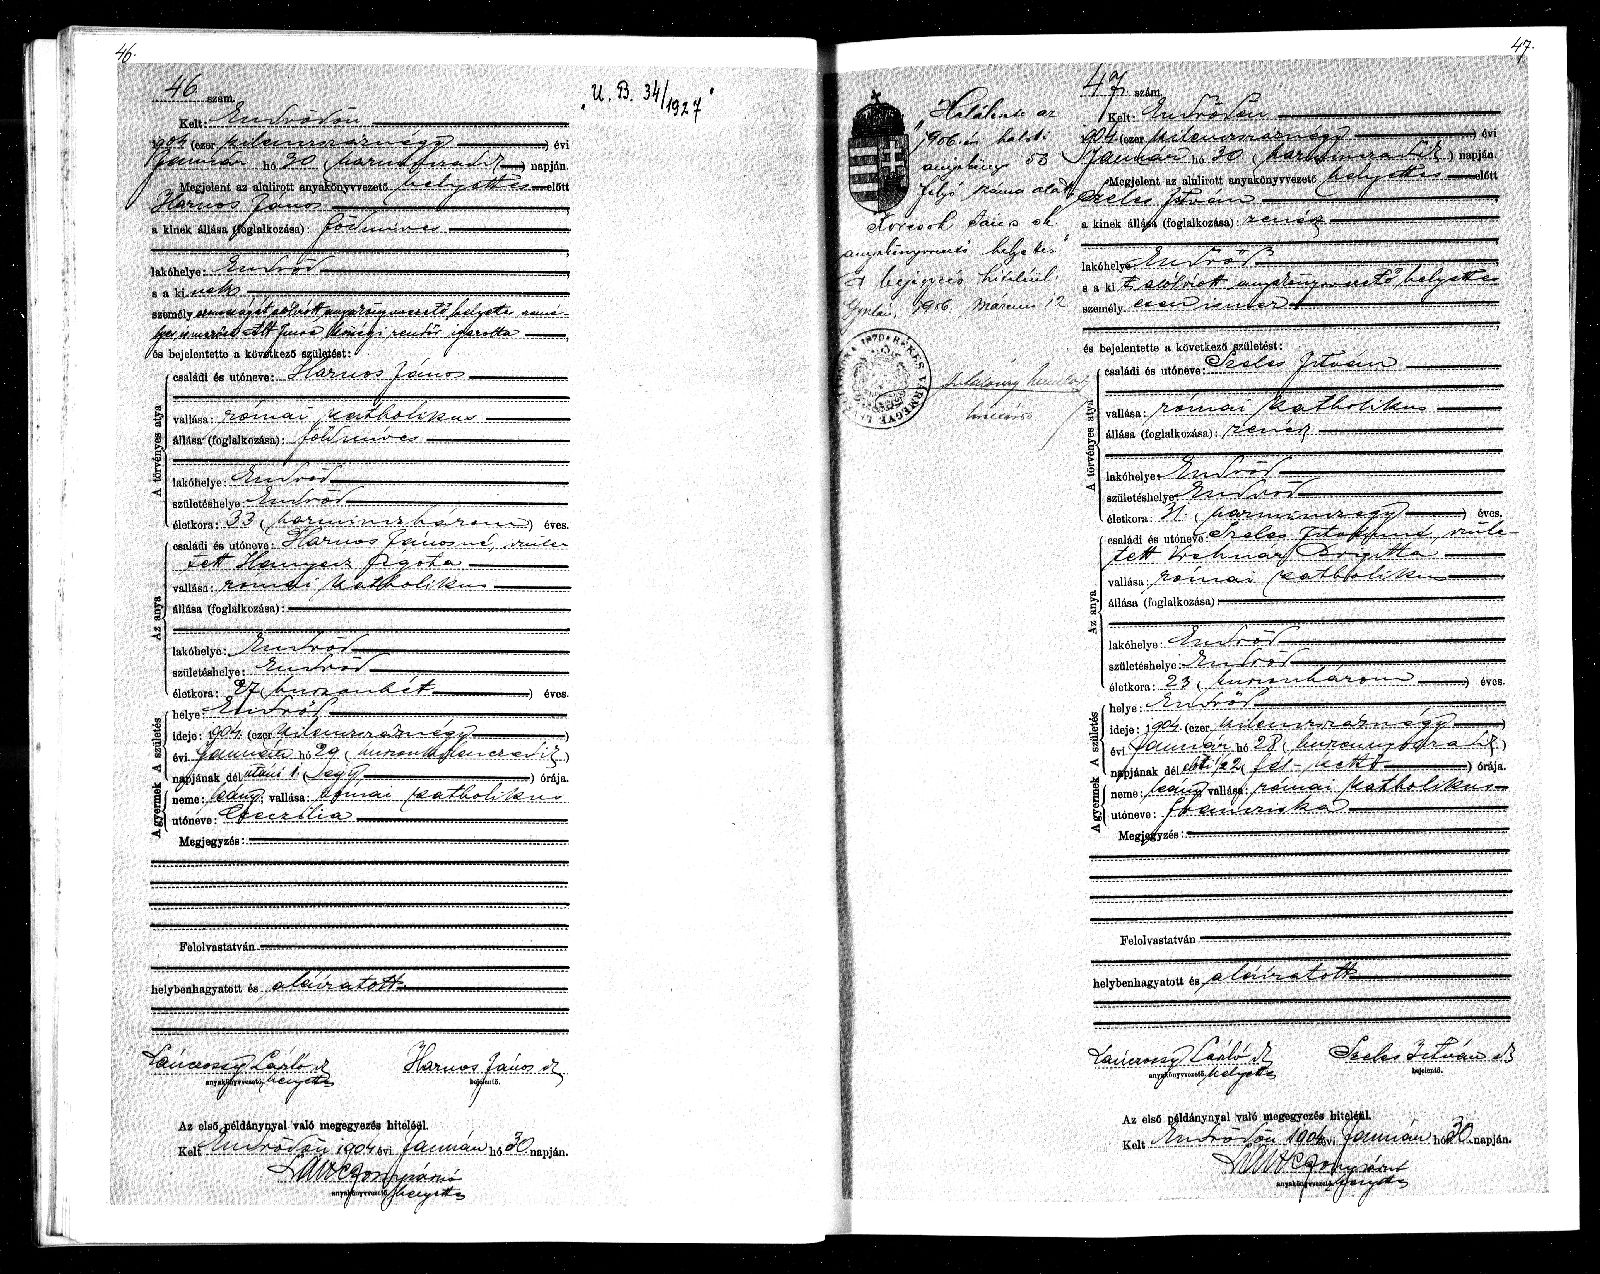 46.
46 szám.
"U. B. 34/1927"
Kelt: Endrődön
1904 (ezer kilenczszáznégy) évi
Január hó 30 (harminczadik) napján.
Megjelent az alulirott anyakönyvvezető helyettes előtt
Harnos János
a kinek állása (foglalkozása): földmíves
lakóhelye: Endrőd
s a ki nek
személy
rendőr igazolta
és bejelentette a következő születést:
A törvényes atya
családi és utóneve: Harnos János
vallása: római katholikus
állása (foglalkozása): földmíves
lakóhelye: Endrőd
születéshelye: Endrőd
életkora: 33 (harminczhárom) éves.
Az anya
családi és utóneve: Harnos Jánosné, szüle-
tett Hanyecz Ágota
vallása: római katholikus
állása (foglalkozása):
lakóhelye: Endrőd
születéshelye: Endrőd
életkora: 27 (huszonhét) éves.
A gyermek A születés
helye: Endrőd
ideje: 1904 (ezer kilenczszáznégy)
évi Január hó 29 (huszonkilenczedik)
napjának dél utáni 1 (egy) órája.
neme: leány; vallása: római katholikus
utóneve: Czeczilia
Megjegyzés:
Felolvastatván
helybenhagyatott és aláiratott
László helyettes Harnos János
anyakönyvvezető. bejelentő.
Az első példánynyal való megegyezés hiteléül.
Kelt Endrődön 1904 évi Január hó 30 napján.
anyakönyvvezető helyettes
47.
47 szám.
"Halálesete az
1906. évi halotti
anyakönyv 53
folyó száma alatt
János sk
anyakönyvvezető helyettes"
A bejegyzés hiteléül
Gyula, 1906 március 12
Kelt: Endrődön
1904 (ezer kilenczszáznégy) évi
Január hó 30 (harminczadik) napján.
Megjelent az alulirott anyakönyvvezető helyettes előtt
Szeles István
a kinek állása (foglalkozása):
lakóhelye: Endrőd
s a ki t alólírott anyakönyvvezető helyettes
személy esen ismer
és bejelentette a következő születést:
A törvényes atya
családi és utóneve: Szeles István
vallása: római katholikus
állása (foglalkozása):
lakóhelye: Endrőd
születéshelye: Endrőd
életkora: 31 (harminczegy) éves.
Az anya
családi és utóneve: Szeles Istvánné, szüle-
tett Brigitta
vallása: római katholikus
állása (foglalkozása):
lakóhelye: Endrőd
születéshelye: Endrőd
életkora: 23 (huszonhárom) éves.
A gyermek A születés
helye: Endrőd
ideje: 1904 (ezer kilenczszáznégy)
évi Január hó 28 (huszonnyolczadik)
napjának dél előtti ½2 (fél-kettő) órája.
neme: leány vallása: római katholikus
utóneve: Franciska
Megjegyzés:
Felolvastatván
helybenhagyatott és aláiratott
László helyettes Szeles István
anyakönyvvezető. bejelentő.
Az első példánynyal való megegyezés hiteléül.
Kelt Endrődön 1904 évi Január hó 30 napján.
anyakönyvvezető helyettes